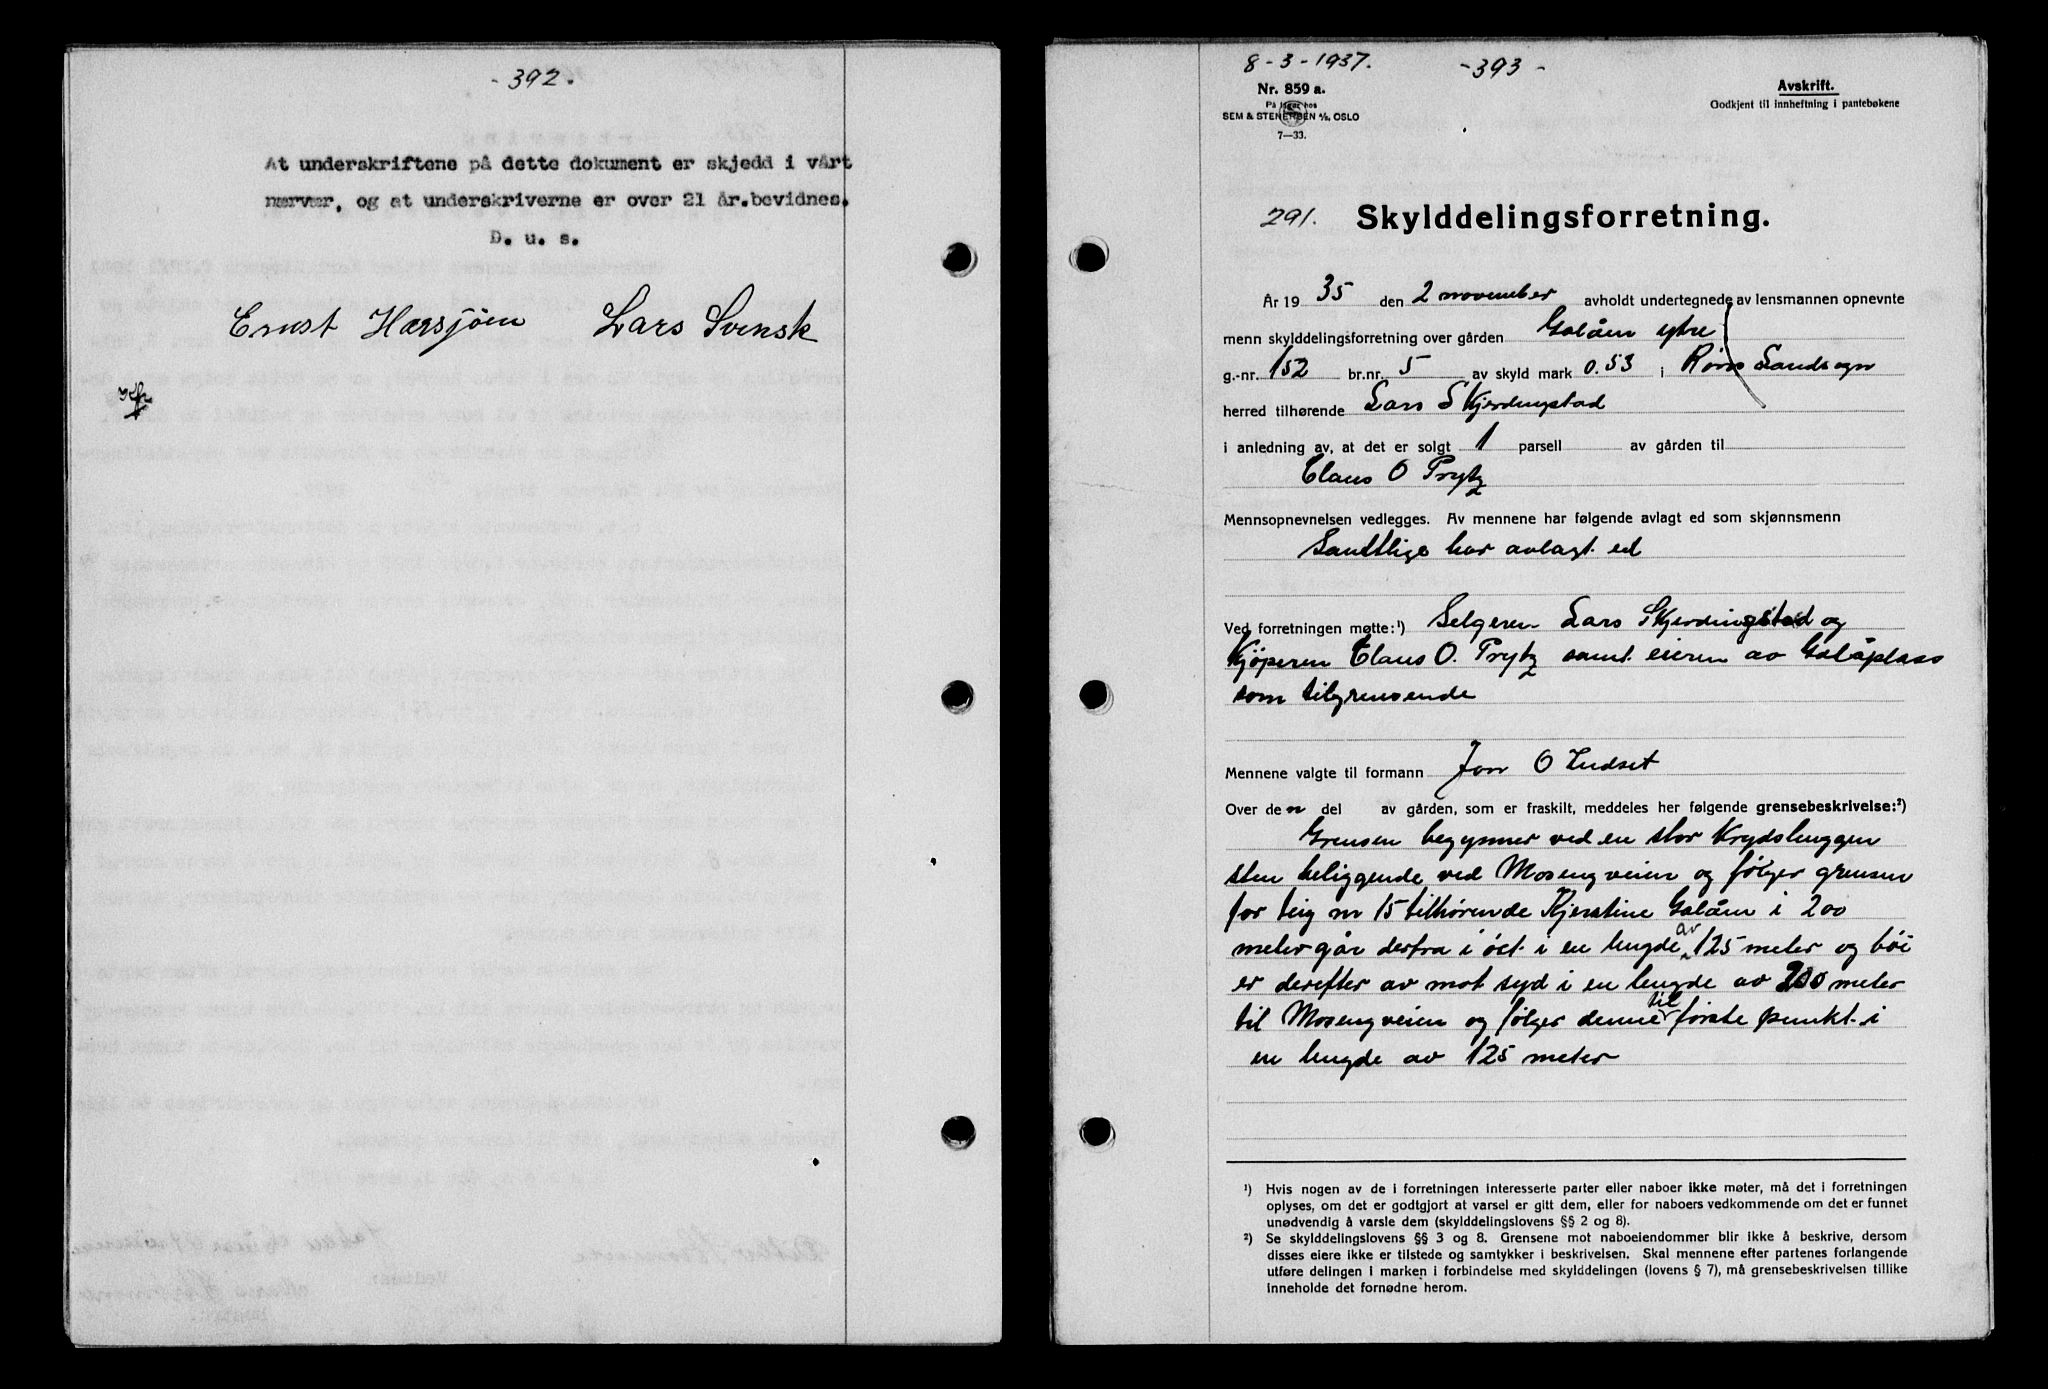 - 392 -
At underskriftene på dette dokument er skjedd i vårt
nærvær, og at underskriverne er over 21 år.bevidnes.
D. u. s.
Ernst Harsjøen Lars Svensk
8-3-1937.
- 393 -
Nr. 859 a.
På lager hos
SEM & STENERSEN A/S, OSLO
7—33.
Avskrift.
Godkjent til innheftning i pantebøkene
291. Skylddelingsforretning.
År 1935 den 2 november avholdt undertegnede av lensmannen opnevnte
menn skylddelingsforretning over gården Galåen ytre
g.-nr. 152 br.nr. 5 av skyld mark 0.53 i Røros Landsogn
herred tilhørende Lars Skjerdingstad
i anledning av, at det er solgt 1 parsell av gården til
Claus O Prytz
Mennsopnevnelsen vedlegges. Av mennene har følgende avlagt ed som skjønnsmenn
Samtlige har avlagt ed
Ved forretningen møtte:¹) Selgeren Lars Skjerdingstad og
Kjøperen Claus O. Prytz samt eieren av Galåplass
som tilgrensende
Mennene valgte til formann Jon O
Over den del av gården, som er fraskilt, meddeles her følgende grensebeskrivelse:²)
Grensen begynner ved en stor Krydshuggen
sten beliggende ved Mosengveien og følger grensen
for teig nr 15 tilhørende Kjerstine Galåen i 200
meter går derfra i øst i en lengde av 125 meter og bøi
er derefter av mot syd i en lengde av 200 meter
til Mosengveien og følger denne til første punkt i
en lengde av 125 meter
¹) Hvis nogen av de i forretningen interesserte parter eller naboer ikke møter, må det i forretningen
oplyses, om det er godtgjort at varsel er gitt dem, eller for naboers vedkommende om det er funnet
unødvendig å varsle dem (skylddelingslovens §§ 2 og 8).
²) Se skylddelingslovens §§ 3 og 8. Grensene mot naboeiendommer blir ikke å beskrive, dersom
disses eiere ikke er tilstede og samtykker i beskrivelsen. Skal mennene efter partenes forlangende
utføre delingen i marken i forbindelse med skylddelingen (lovens § 7), må grensebeskrivelsen tillike
inneholde det fornødne herom.